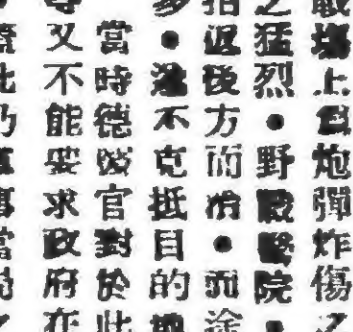 戰壕上爲炮彈炸傷之
之猛烈●野戰醫院●
返後方而治●而途
多●不克抵目的地
當時德官對於此
又不能要求政府在